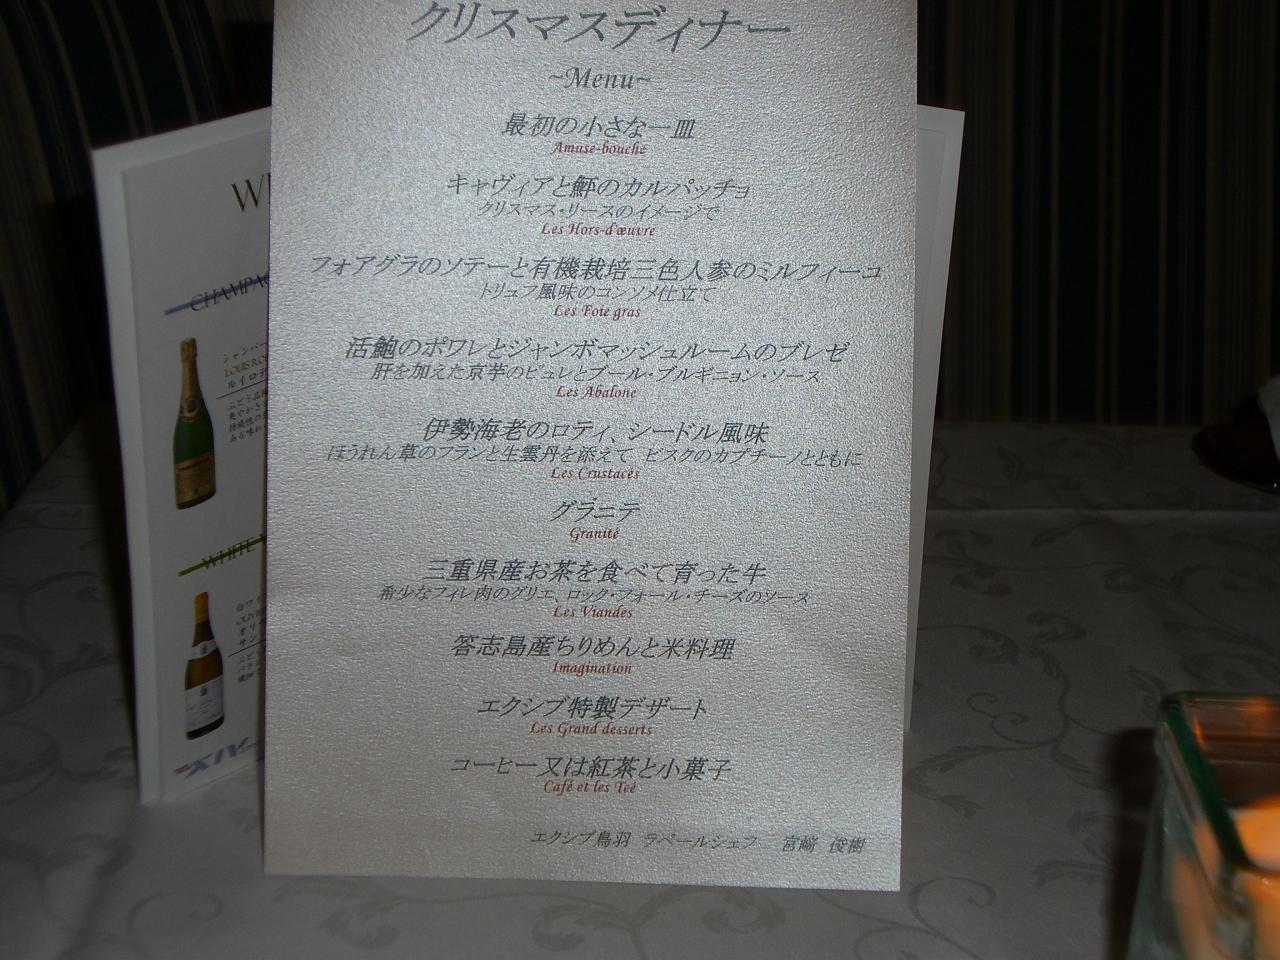 クリスマスディナー
~Menu~
最初の小さな一皿
Amuse-bouche
キャヴィアと鮃のカルパッチョ
クリスマス・リースのイメージで
Les Hors-d'œuvre
フォアグラのソテーと有機栽培三色人参のミルフィーユ
トリュフ風味のコンソメ仕立て
Les Foie gras
活鮑のポワレとジャンボマッシュルームのブレゼ
肝を加えた京芋のピュレとブール・ブルギニョン・ソース
Les Abalone
伊勢海老のロティ、シードル風味
ほうれん草のフランと生雲丹を添えて ビスクのカプチーノとともに
Les Crustacés
グラニテ
Granité
三重県産お茶を食べて育った牛
希少なフィレ肉のグリエ、ロック・フォール・チーズのソース
Les Viandes
答志島産ちりめんと米料理
Imagination
エクシブ特製デザート
Les Grand desserts
コーヒー又は紅茶と小菓子
Café et les Teé
エクシブ鳥羽 ラペールシェフ 宮﨑 俊樹
CHAMPAG
シャンパー
LOUIS RO
ルイロデ
WHITE
XIV